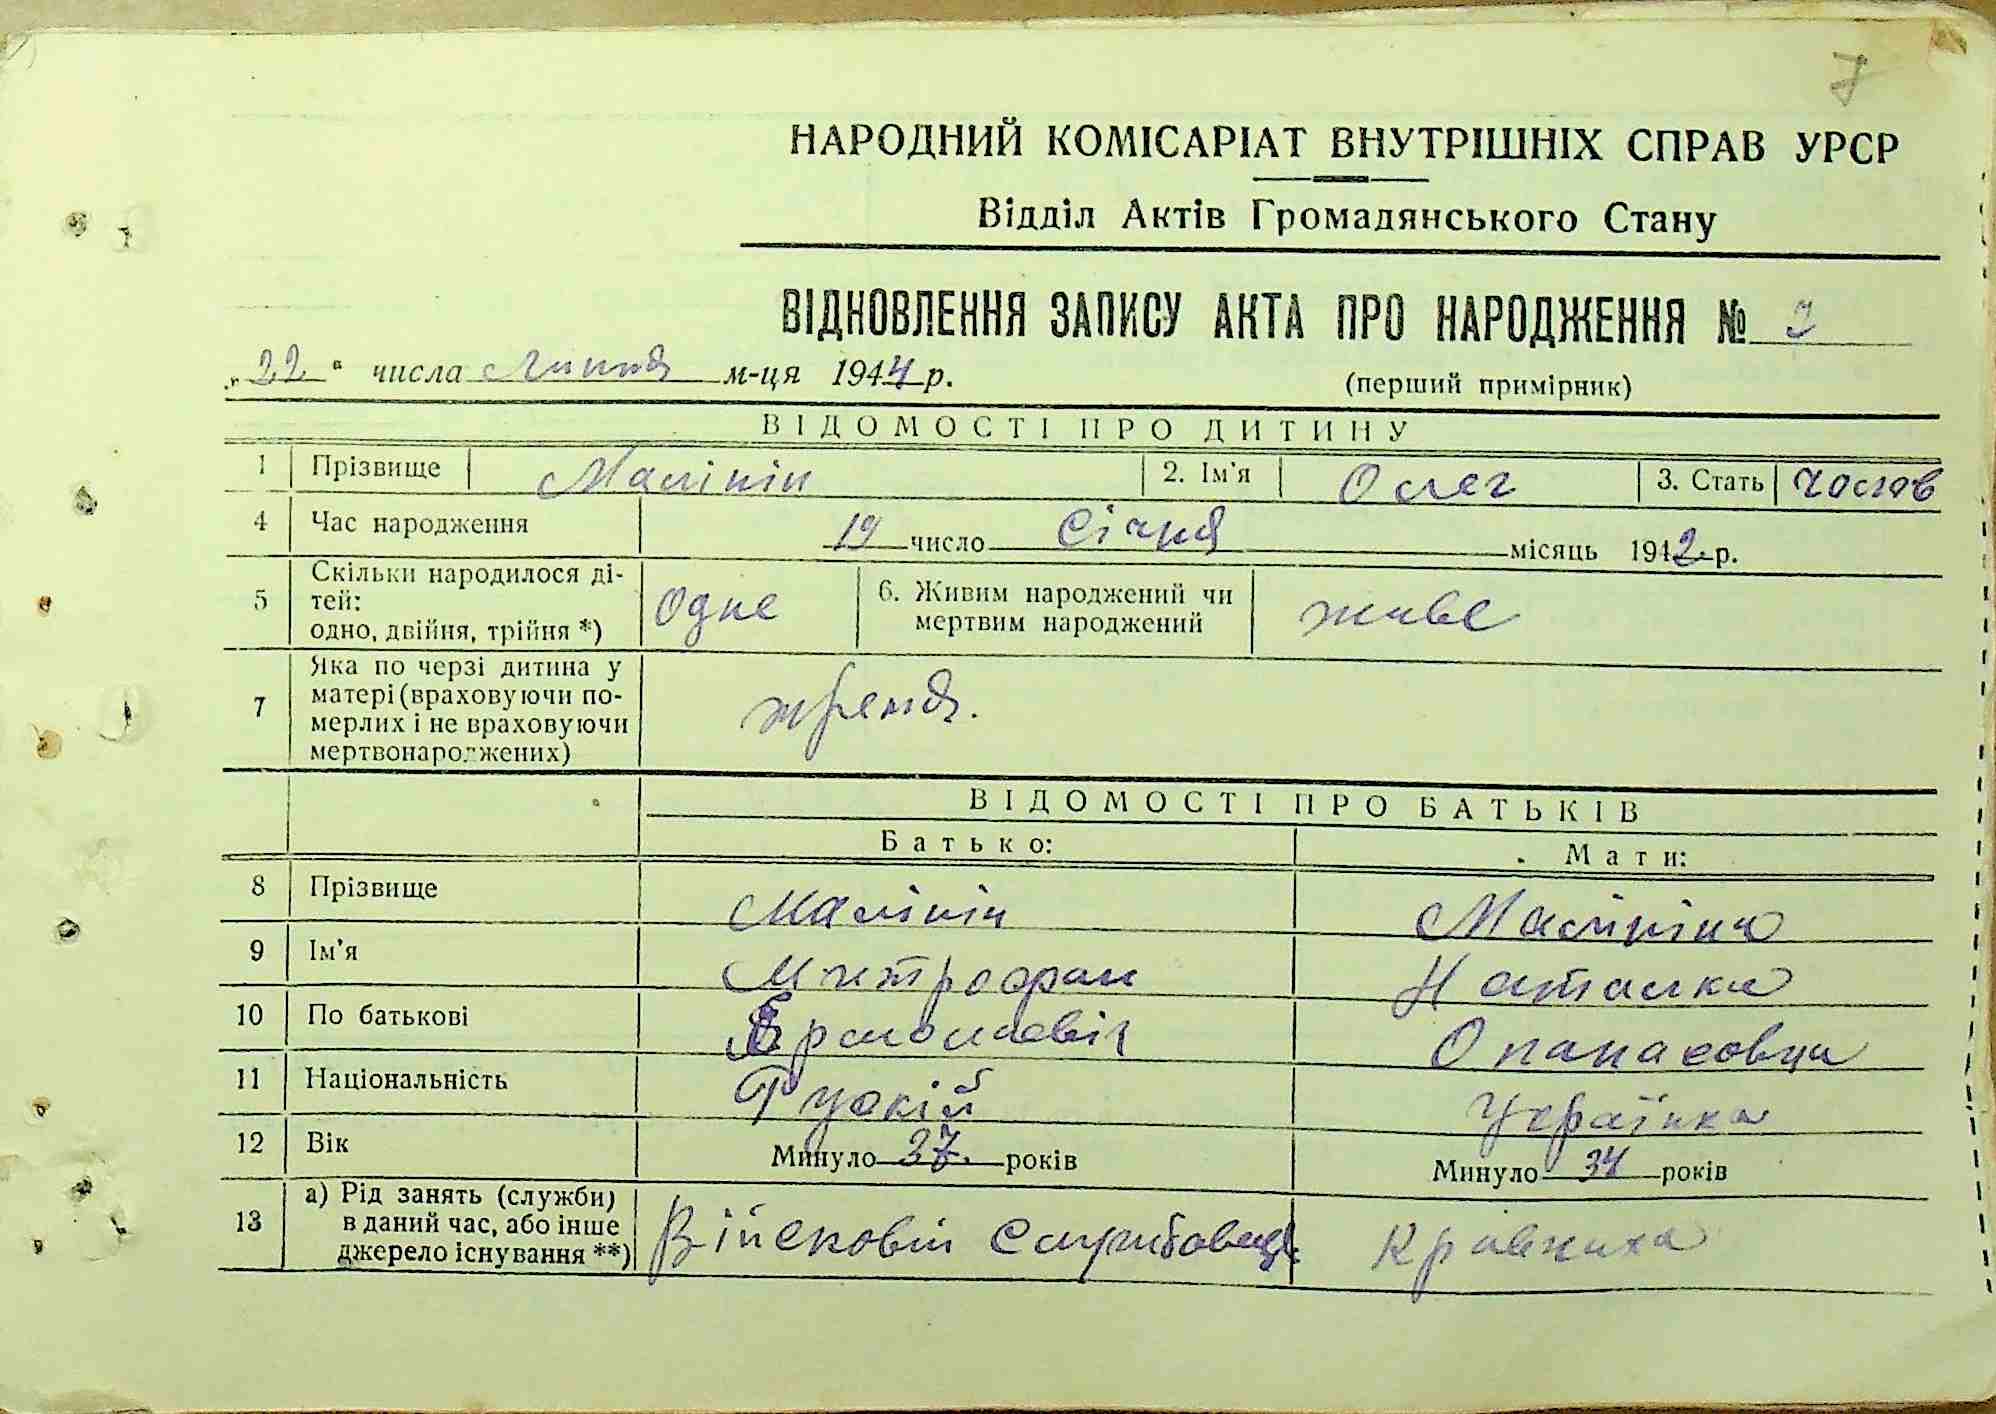 7
НАРОДНИЙ КОМІСАРІАТ ВНУТРІШНІХ СПРАВ УРСР
Відділ Актів Громадянського Стану
ВІДНОВЛЕННЯ ЗАПИСУ АКТА ПРО НАРОДЖЕННЯ № 2
„22“ числа Липня м-ця 1944 р. (перший примірник)
ВІДОМОСТІ ПРО ДИТИНУ
1 Прізвище Малінін 2. Ім'я Олег 3. Стать чолов
4 Час народження 19 число Січня місяць 1942 р.
5 Скільки народилося ді-
тей:
одно, двійня, трійня *) Одне 6. Живим народжений чи
мертвим народжений живе
7 Яка по черзі дитина у
матері (враховуючи по-
мерлих і не враховуючи
мертвонароджених) третя.
ВІДОМОСТІ ПРО БАТЬКІВ
Батько: Мати:
8 Прізвище Малінін Малініна
9 Ім'я Митрофан Наталка
10 По батькові Єрмолаевіч Опанасовна
11 Національність Рускій Українка
12 Вік Минуло 37. років Минуло 34 років
13 а) Рід занять (служби)
в даний час, або інше
джерело існування **) Війсковій Службовець. Кравчиха